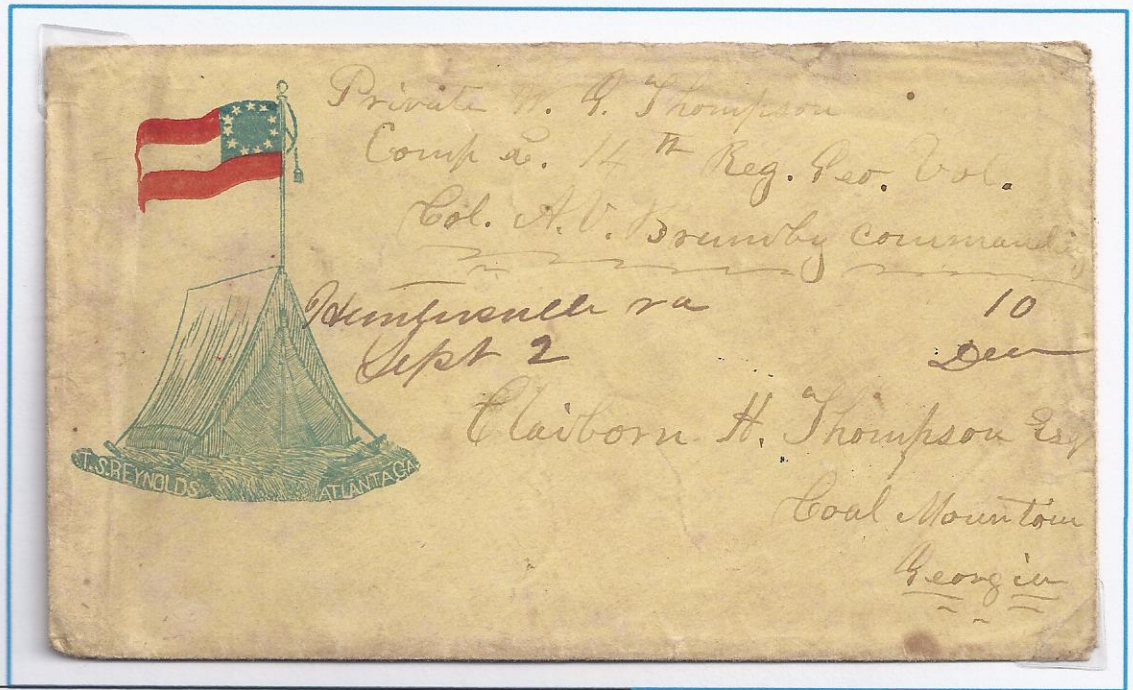 Private W. G. Thompson
Comp E. 14th Reg. Geo. Vol.
Col. A. V. Brumby Commanding
Huntersville va 10
Sept 2 Due
Claiborn H. Thompson Esq
Coal Mountain
Georgia
T. S. REYNOLDS ATLANTA GA